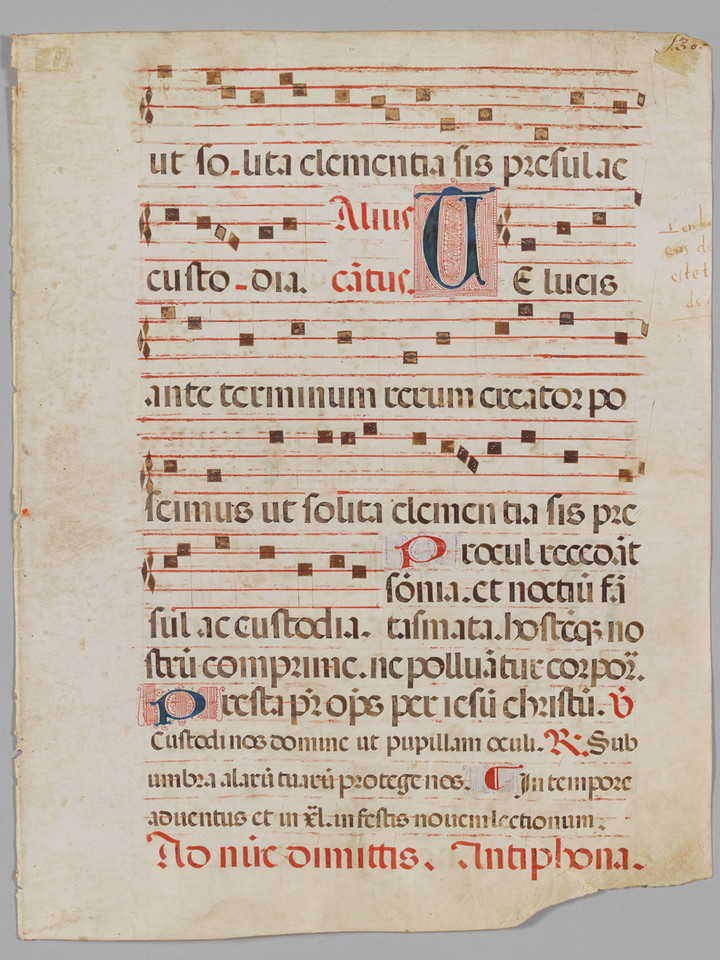 ut so-lita clementia sis presul ac
custo-dia. Alius cãtus. TE lucis
ante terminum rerum creator po
scimus ut solita clemen tia sis pre
Procul recedãt
sõnia. et noctiũ fã
sul ac custodia. tasmata. hostẽq; no
strũ comprime. ne polluãtur corpoꝛ.
Presta pr̃ op̃s per iesũ christũ. ℣
Custodi nos domine ut pupillam oculi. ℟. Sub
umbra alarũ tuarũ protege nos. In tempore
aduentus et in xl. in festis nouem lectionum.
Ad nũc dimittis. Antiphona.